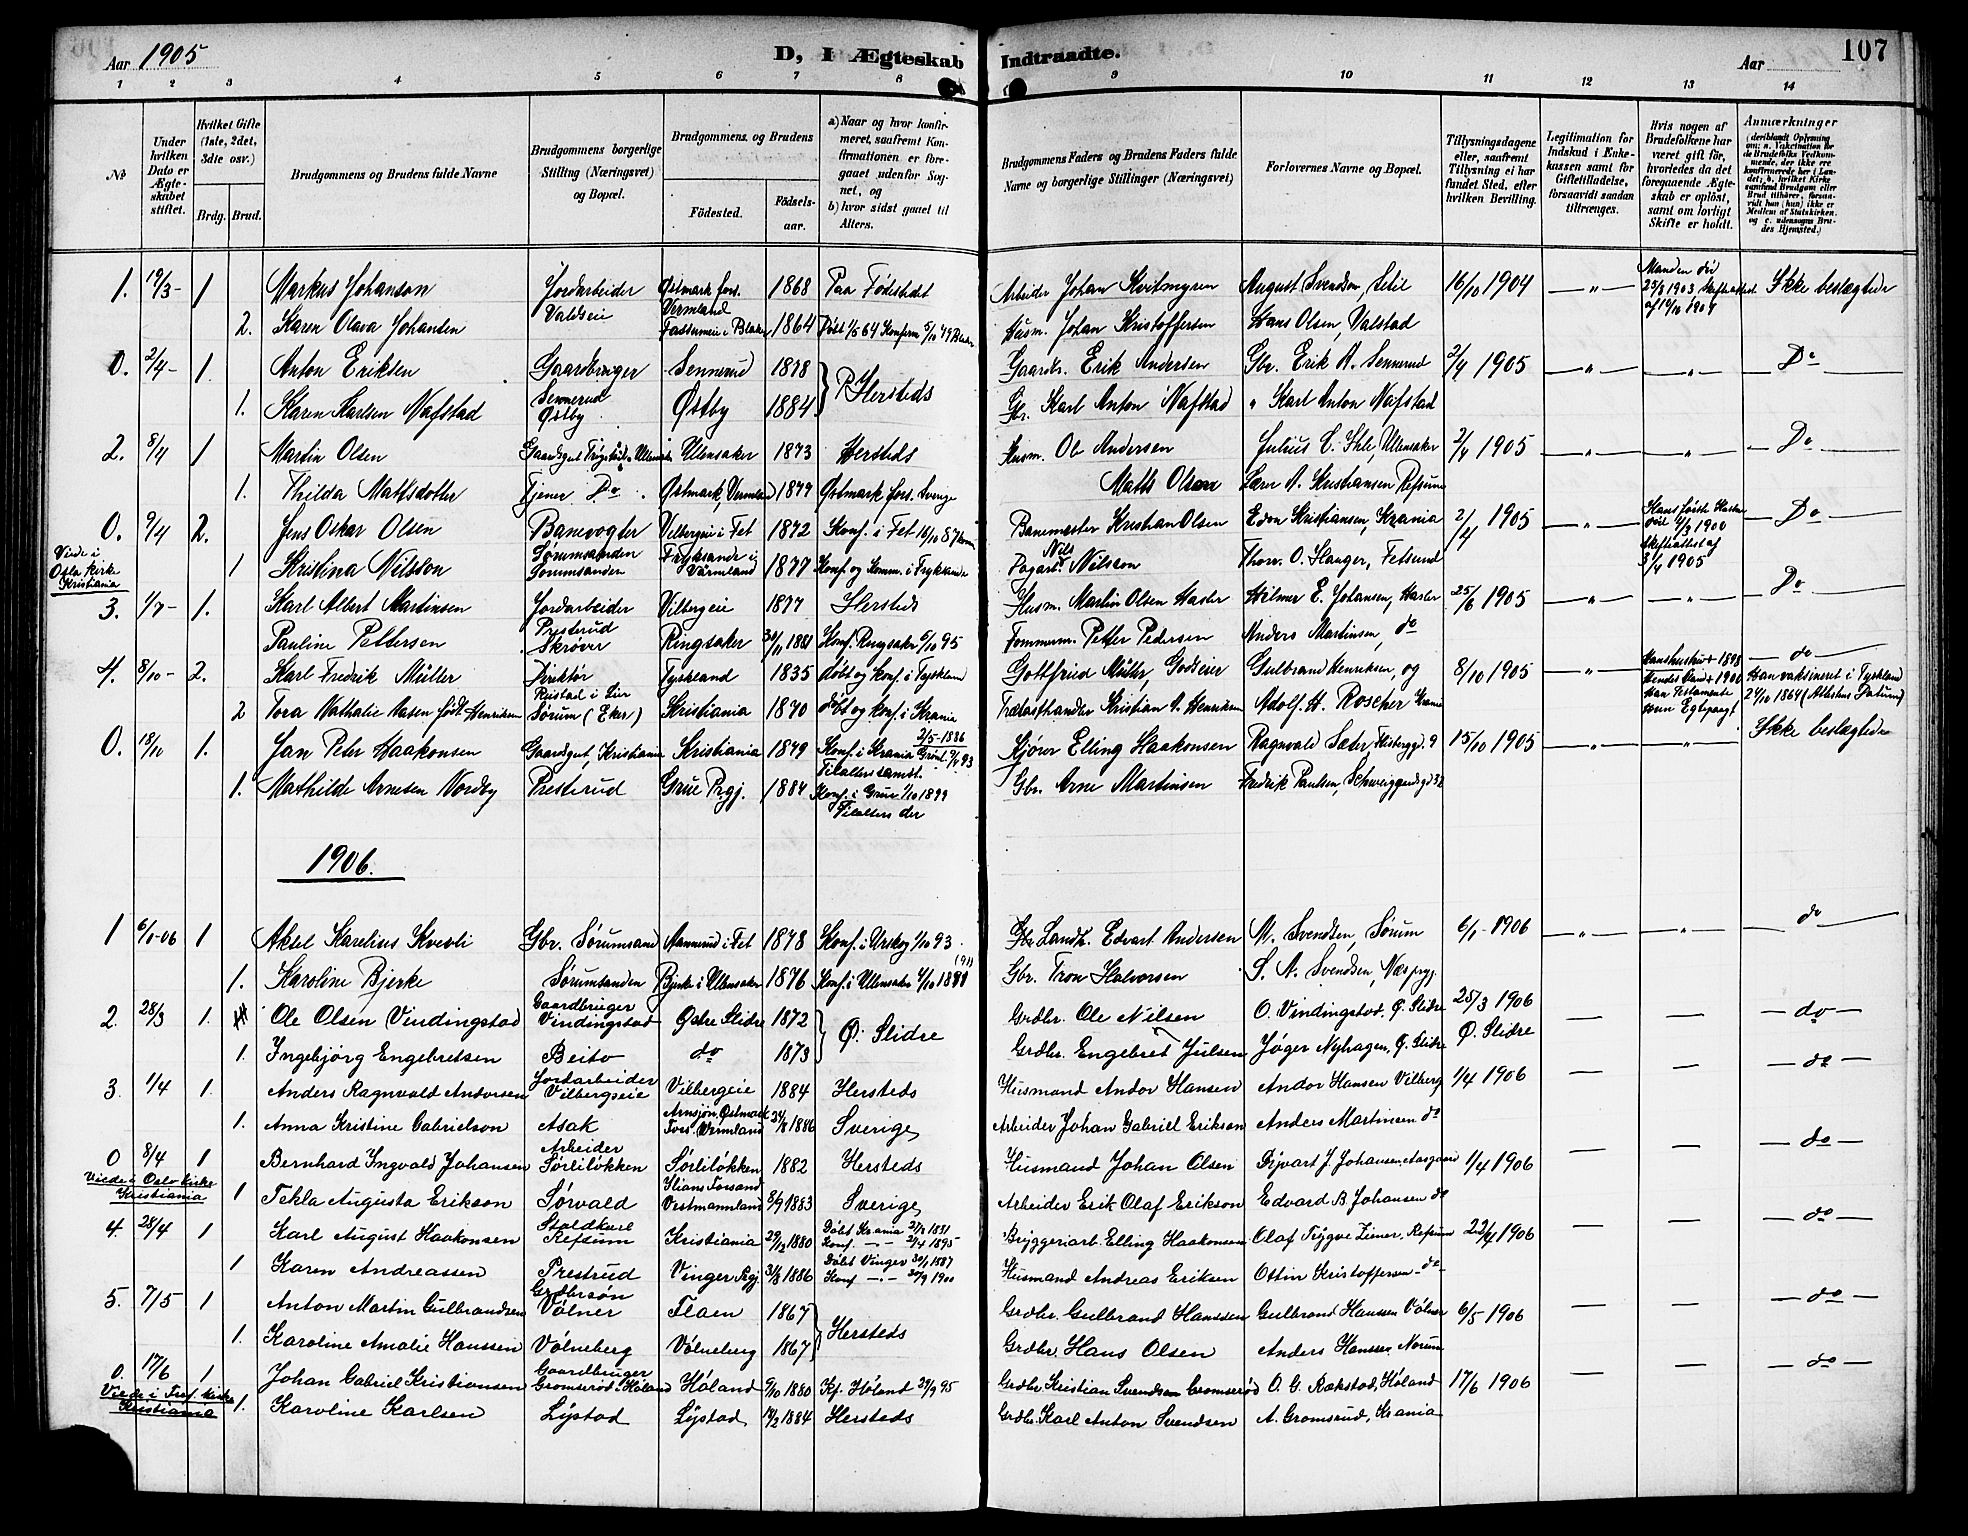 Aar 1905
D, I Ægteskab Indtraadte.
Aar
107
1 2 3 4 5 6 7 8 9 10 11 12 13 14
No
Under hvilken Dato er Ægteskabet stiftet.
Hvilket Gifte (1ste, 2det, 3die osv.)
Brdg. Brud.
Brudgommens og Brudens fulde Navne
Brudgommens borgerlige Stilling (Næringsvei) og Bopæl.
Brudgommens og Brudens
Födested.
Födselsaar.
a) Naar og hvor konfirmeret, saafremt Konfirmationen er foregaaet udenfor Sognet, og
b) hvor sidst gaaet til Alters.
Brudgommens Faders og Brudens Faders fulde Navne og borgerlige Stillinger (Næringsvei)
Forlovernes Navne og Bopæl.
Tillysningsdagene eller, saafremt Tillysning ei har fundet Sted, efter hvilken Bevilling.
Legitimation for Indskud i Enkekassen samt for Giftetilladelse, forsaavidt saadan tiltrænges.
Hvis nogen af Brudefolkene har været gift för, hvorledes da det foregaaende Ægteskab er oplöst, samt om lovligt Skifte er holdt.
Anmærkninger (deriblandt Oplysning om: a. Vakcination for de Brudefolks Vedkommende, der ikke ere konfirmerede her i Landet; b. hvilket Kirkesamfund Brudgom eller Brud tilhører, forsaavidt han (hun) ikke er Medlem af Statskirken, og c. udensogns Brudes Hjemsted.)
1. 19/3- 1 Markus Johanson Jordarbeider Valdseie Østmark fors. Vermland 1868 Paa Fødestedet Arbeider Johan Kvitmyren August Svendsen, Selie 16/10 1904 — " — Manden død 25/8 1903 Skifteattest af 14/10 1904 Ikke beslægtede
2. Karen Olava Johansen i Blaker 1864 Døbt 1/5 64 Konferm 5/10 79 Blaker Husm. Johan Kristoffersen Hans Olsen, Valstad
0. 2/4- 1. Anton Eriksen Gaardbruger Sennerud Sennerud 1878 Hersteds Gaardbr. Erik Andersen Gbr. Erik A. Sennerud 2/4 1905 — " — — " — Do
1. Karen Karlsen Nafstad Østby Østby 1884 Gbr. Karl Anton Nafstad " Karl Anton Nafstad
2. 8/4 1 Martin Olsen Gaardsgut Ullensaker 1873 Hersteds Husm. Ole Andersen Julius C. Ullensaker 2/4 1905 — " — — " — Do
1. Thilda Mattsdotter Tjener Do. Østmark, Vermland 1879 Østmark fors. Sverige Matts Olsson Lærer A. Kristiansen Refsum
0. 9/4 2. Jens Oskar Olsen Banevogter Sørumsanden Vilbergeie i Fet 1872 Konf. i Fet 16/10 87 Banemester Kristian Olsen Edvn Kristiansen, Krania 2/4 1905 — " — Hans første Hustru død 4/9 1900 Skifteattest af 3/4 1905 — Do —
Viede i Oslo Kirke Kristiania
1 Kristina Nilsson Sorumsanden Fryksande i Värmland 1877 Konf og Komm. i Fryksande Nils Nilsson Thorv. O. Slanger, Fetsund
3. 1/7- 1. Karl Albert Martinsen Jordarbeider Presterud Vilbergeie 1877 Hersteds Husm. Martin Olsen Hasler Hilmer E. Johansen, Hasler 25/6 1905 — " — — " — Do
Pauline Pettersen Skrøver Ringsaker 30/11 1881 Konf. Ringsaker 6/10 95 Tømmerm. Petter Pedersen Anders Martinsen, do
4. 8/10- 2. Karl Fredrik Müller Direktør Tyskland 1835 Døbt og Konf. i Tyskland Gottfried Müller, Godseier Gulbrand Henriksen, og 8/10 1905 — " — Hans hustru + 1898 Hendes Mand + 1900 Han Testamente Hun Egtepagt — do — Han vaktineret i Tyskland 24/10 1864 (Attestens Datum)
2 Tora Nathalie Aasen født Henriksen Sørum (Eker) Kristiania 1870 døbt og konf. i Krania Trælasthandler Kristian A. Henriksen Adolf H. Roscher Krania
0. 18/10 1. Jan Peter Haakonsen Gaardsgut, Kristiania Kristiania 1879 Konf. i Krania Grønl. 2/5-1886 93 Tilalters samst. Kjører Elling Haakonsen Ragnvald Sæter, 9 15/10 1905 — " — — " — Ikke beslægtede
1. Mathilde Arnesen Nordby Presterud Grue Prgj. 1884 Konf. i Grue 1/10 1899 Tilalters der Gbr. Arne Martinsen Fredrik Paulsen, Schweiggaardsgd 32
1906.
1 6/1-06 1 Aksel Karelius Kvevli Gbr. Sørumsand i Fet 1878 Konf. i Urskog 1/10 93. Gbr Landh. Edvart Andersen M. Svendsen, Sørum 6/1-1906 — " — — " — do
1. Karoline Bjerke Sørumsanden Bjerke i Ullensaker 1876 Konf. i Ullensaker 4/10 1891 (91) Gbr. Tron Halvorsen S. A. Svendsen, Næs prgj.
2. 28/3 1. Ole Olsen Vindingstad Gaardbruger Vindingstad Østre Slidre 1872 Ø. Slidre Grdbr. Ole Nilsen O. Vindingstad, Ø. Slidre 25/3 1906 — — — do —
1. Ingebjörg Engebretsen Beito do 1873 Grdbr. Engebret Julsen Jøger Nyhagen, Ø. Slidre Ø. Slidre
3. 1/4 1. Anders Ragnvald Andersen Jordarbeider Vilbergseie Vilbergeie 1884 Hersteds Husmand Andor Hansen Andor Hansen Vilberg 1/4 1906 — — — do —
1. Anna Kristine Gabrielson Asak Arnsjön, Østmark Fors. Vermland 24/8 1886 Sverige Arbeider Johan Gabriel Erikson Anders Martinsen do
0 8/4 1 Bernhard Ingvald Johansen Arbeider Sørliløkken Sørliløkken 1882 Hersteds Husmand Johan Olsen J. Johansen, Aasgaard 1/4 1906 — — — do —
Viede i Oslo kirke Kristiania
1 Tekla Augusta Erikson Sørvald Vestmannland 8/9 1883 Sverige Arbeider Erik Olaf Erikson Edvard B. Johansen do
4. 28/4 1 Karl August Haakonsen Staldkarl Refsum Kristiania 29/12 1880 Døbt Krania 27/3 1881 Konf. — — 21/4 1895 Bryggeriarb. Elling Haakonsen Olaf Trygve Zimer, Refsum 22/4 1906 — — — do —
1 Karen Andreassen Prestrud Vinger Prgj. 31/8 1886 Døbt Vinger 30/1 1887 Konf — " — 30/9 1900 Husmand Andreas Eriksen Ottin Kristoffersen - do -
5. 7/5 1 Anton Martin Gulbrandsen Grdbrsøn Vølner Flaen 1867 Hersteds Grdbr. Gulbrand Hanssen Gulbrand Hanssen Vølner 6/5 1906 — — — do —
1. Karoline Amalie Hanssen Vølneberg Vølneberg 1867 Grdbr. Hans Olsen Anders Hanssen Norum
0. 17/6 1 Johan Gabriel Kristiansen Gaardbruger Gromserød i Høland Høland 9/10 1880 Kf. Høland 29/9 95 Grdbr Kristian Svendsen Gromserød O. G. Rakstad, Høland 17/6 1906 — — — do —
Viede i Kirke Kristiania
1. Karoline Karlsen Lystad Lystad 14/2 1884 Hersteds Grdbr. Karl Anton Svendsen A. Gromsrud, Krania